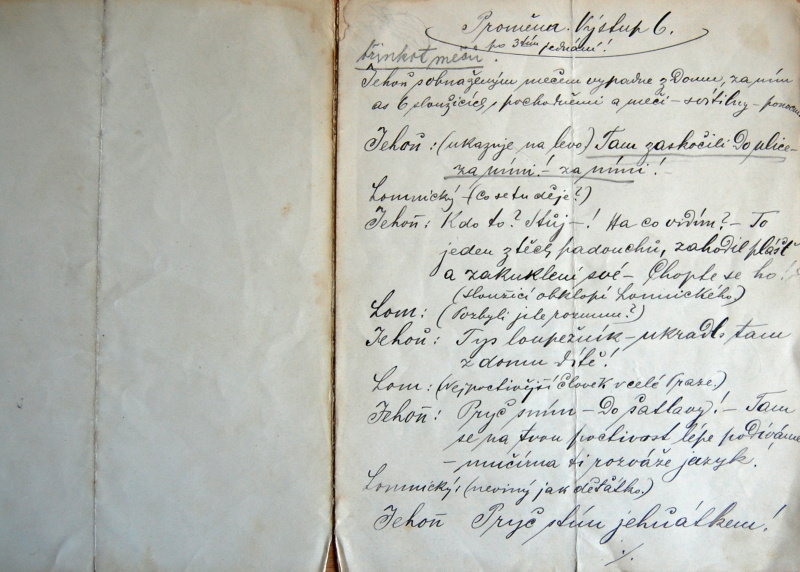 Proměna. Výstup 6.
po 3tím jednání!
třinkot mečů.
Jehoň s obnaženým mečem vypadne z Domu, za ním
as 6 sloužících s pochodněmi a meči – svítilny – ponocní
Jehoň: (ukazuje na levo) Tam zaskočili Do ulice –
za nimi! – za nimi! –
Lomnický – (Co se tu děje?)
Jehoň: Kdo to? Stůj –! Ha co vidím? – To
jeden z těch padouchů, zahodil plášť
a zakuklení své – Chopte se ho!
(Sloužící obklopí Lomnického)
Lom: (Pozbyli jste rozumu?)
Jehoň: Tys loupežník – ukradls tam
z domu dítě!
Lom: (Nejpoctivější člověk v celé Praze.)
Jehoň: Pryč s ním – Do šatlavy! – Tam
se na tvou poctivost lépe podíváme
– mučírna ti rozváže jazyk.
Lomnický: (neviný jak děťátko.)
Jehoň Pryč s tím jehňátkem!
./.